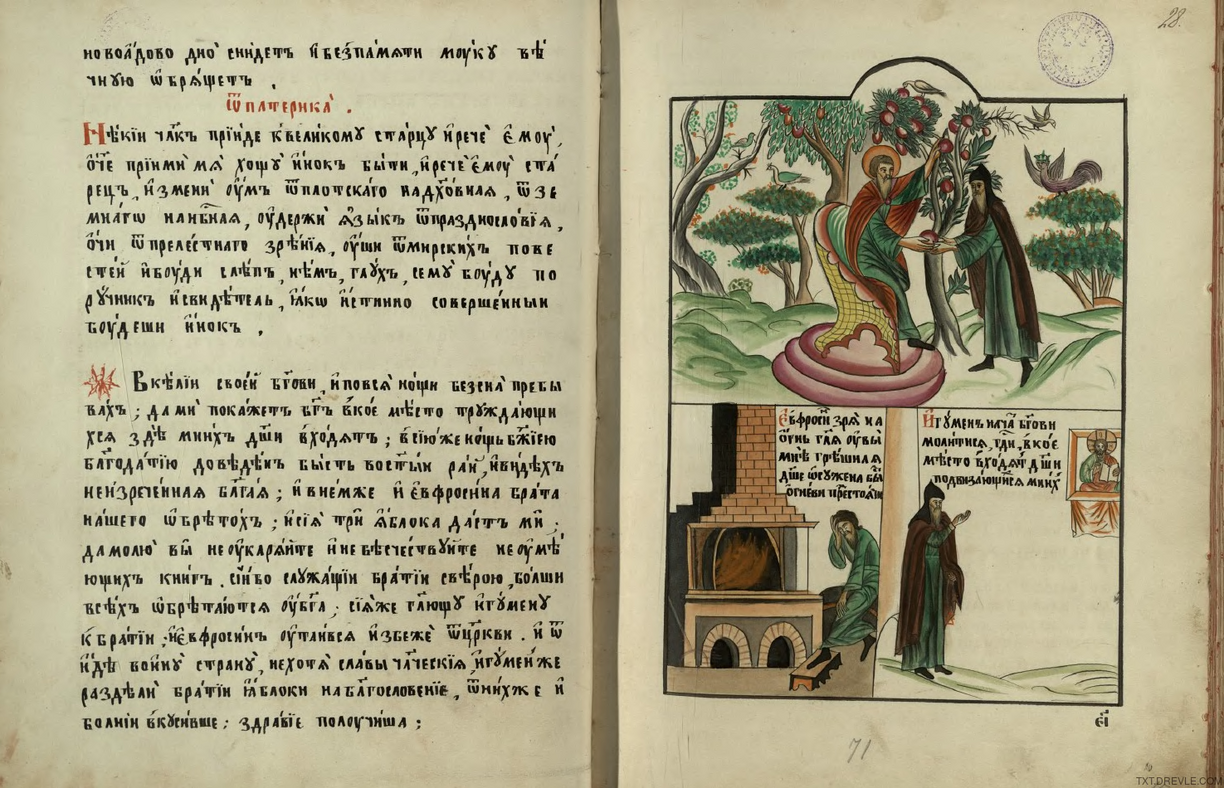 но во а҆дово дно̀ снидетъ и҆ безпа́мяти мо́уку вѣ́
чную ѡ҆бря́щетъ .
ѿ патерика̀ .
Нѣ́кїи чл҃къ прїи́де к̾ вели́кому ста́рцу и҆ речѐ є҆мо́у ,
о҆́т҃че прїими́ мѧ̀ хощу̀ и҆́нокъ бы́ти , и҆ речѐ є҆мо́у ста́
рецъ , и҆зменѝ оу҆́мъ ѿ пло́тскаго на дх҃о́вная , ѿ зе
мна́гѡ на нб҃ная , оу҆держѝ я҆зы́къ ѿ празднословїя ,
о҆́чи ѿ преле́стнаго зрѣ́нїя , оу҆́ши ѿ мирски́хъ пове
сте́й и҆ бо́уди слѣ́пъ , нѣ́мъ , глу́хъ , сему̀ бо́уду по
ру́чникъ и҆ свидѣ́тель , ꙗ҆́кѡ и҆́стинно соверше́нныи
бо́удеши и҆́нокъ .
В ке́лїи свое́й бг҃ови , и҆ по всѧ̀ но́щи без̾ сна̀ пребы
ва́хъ ; да мѝ пока́жетъ бг҃ъ в̾ ко́е мѣ́сто тружда́ющи
хся здѣ̀ мни́хъ дш҃и вхо́дятъ ; в сїю́ же но́щь бж҃їею
благода́тїю доведе́нъ бы́сть во ст҃ы́и ра́й , и҆ ви́дѣхъ
неизрече́нная бл҃га́я ; и҆ в не́мже и҆ є҆вфро́сина бра́та
на́шего ѡ҆брѣто́хъ ; и҆ сїя̀ трѝ я҆́блока да́стъ мѝ ;
да молю̀ вы̀ не оу҆каря́йте и҆ не бе́счествуйте не оу҆мѣ́
ющихъ кни́гъ . сі́и бо служа́щїи бра́тїи с вѣ́рою , бо́лши
всѣ́хъ ѡ҆брѣта́ются оу҆ бг҃а ; сїя́же гл҃ющу и҆гу́мену
к̾ бра́тїи ; и҆ є҆вфро́синъ оу҆таи́вся и҆збежѐ ѿ цр҃кви . и҆ ѿ
и҆́де во и҆́ну страну̀ , не хотя̀ сла́вы чл҃ческїя , и҆гу́мен же
раздѣлѝ бра́тїи ꙗ҆́блоки на бл҃гослове́нїе , ѿ ни́хже и҆
бо́лнїи вкуси́вше ; здра́вїе полоучи́ша ;
28.
Є҆вфроси́н зря̀ на
о҆́гнь гл҃я оу҆вы̀
мнѣ̀ грѣ́шная
дш҃е ѡ҆сужена̀ бы̀
о҆гневѝ престоя́ти
И҆гу́менъ нача̀ бг҃ови
моли́тися , гд҃и , в̾ ко́е
мѣ́сто вхо́дят дш҃и
подвиза́ющихся мни́х
71
TXT.DREVLE.COM